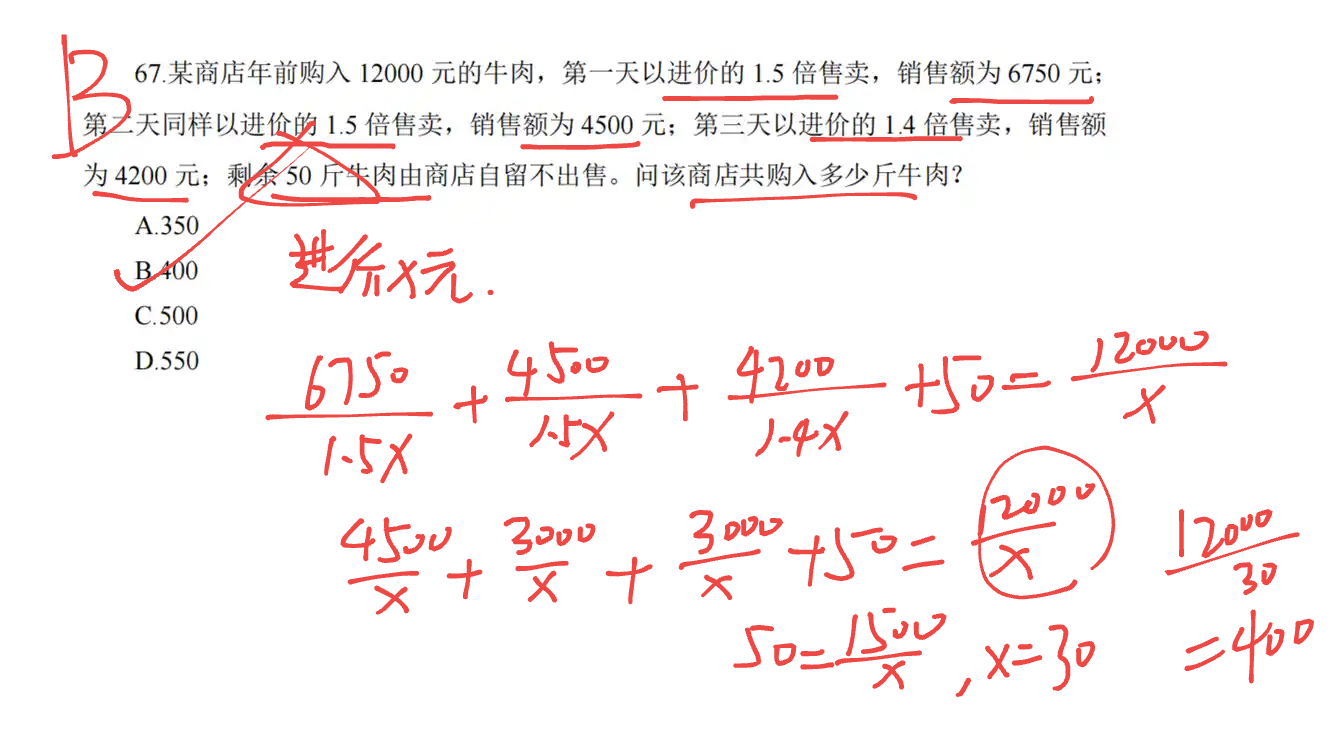 B
67.某商店年前购入 12000 元的牛肉，第一天以进价的 1.5 倍售卖，销售额为 6750 元；
第二天同样以进价的 1.5 倍售卖，销售额为 4500 元；第三天以进价的 1.4 倍售卖，销售额
为 4200 元；剩余 50 斤牛肉由商店自留不出售。问该商店共购入多少斤牛肉？
A.350
B.400
C.500
D.550
进斤x元.
6750/1.5x + 4500/1.5x + 4200/1.4x + 50 = 12000/x
4500/x + 3000/x + 3000/x + 50 = 12000/x
12000/30
50 = 1500/x , x=30
=400